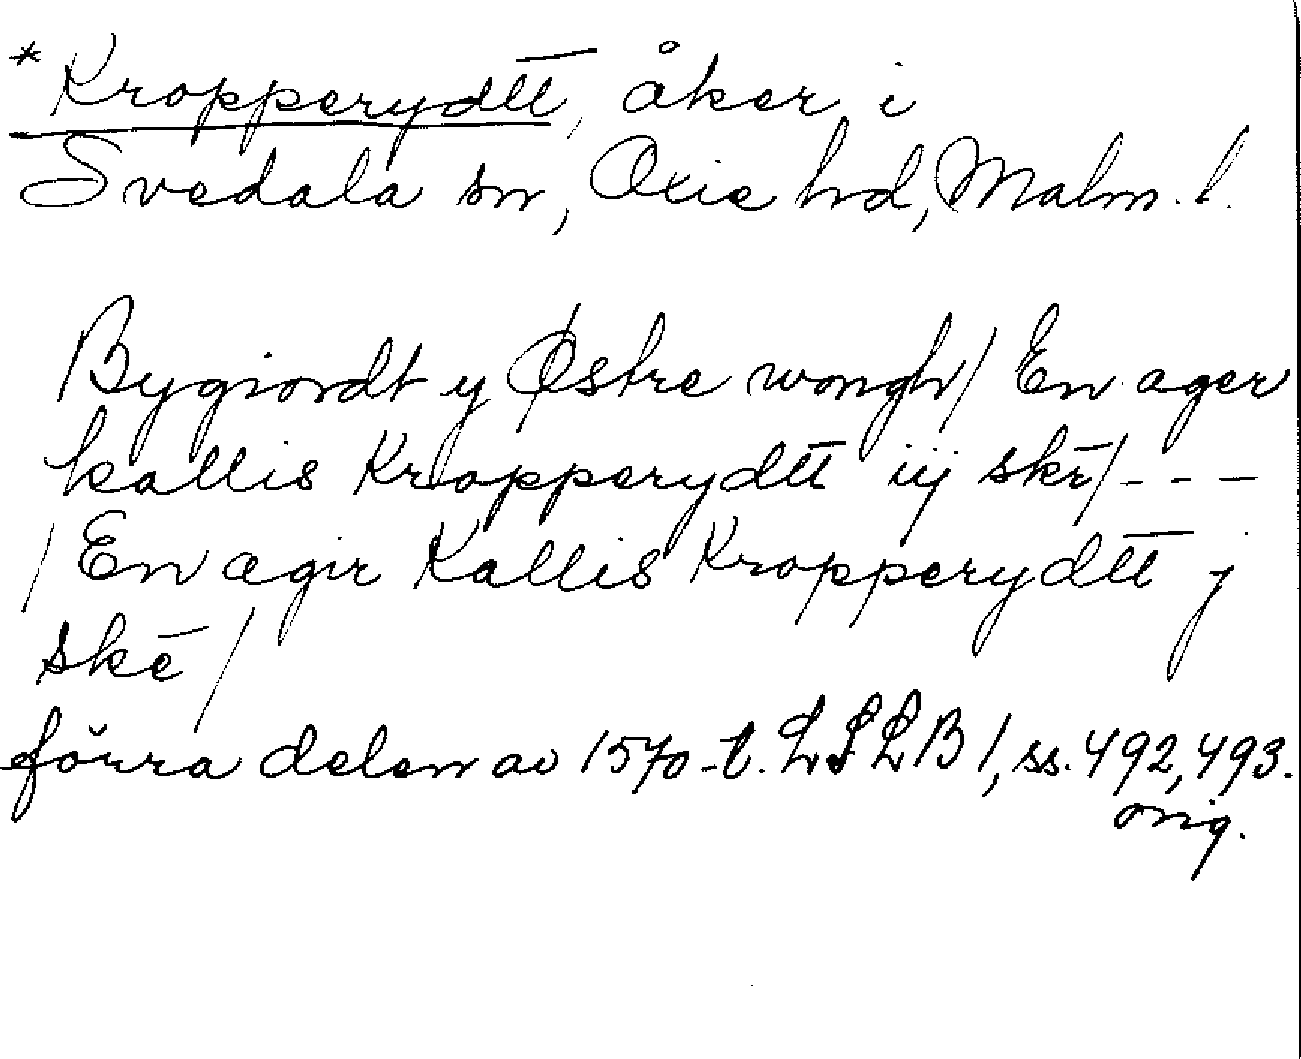 *Kropperydtt̅, åker i
Svedala sn, Oxie hd, Malm. l.
Bygiordt y Østre wongh/ En ager
kallis Kropperydtt̅ iij skē/---
/En agir Kallis Kropperydtt̅ j
skē/
förra delen av 1570-t. LSLB 1, ss. 492, 493.
orig.